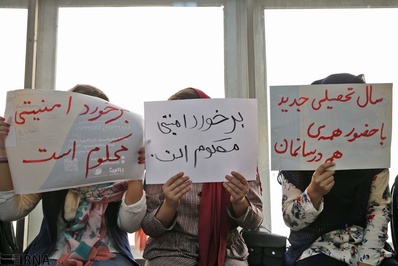 سال تحصیلی جدید
با حضور همه‌ی
هم‌درسانمان
برخورد امنیتی
محکوم است
برخورد امنیتی
محکوم است
IRNA